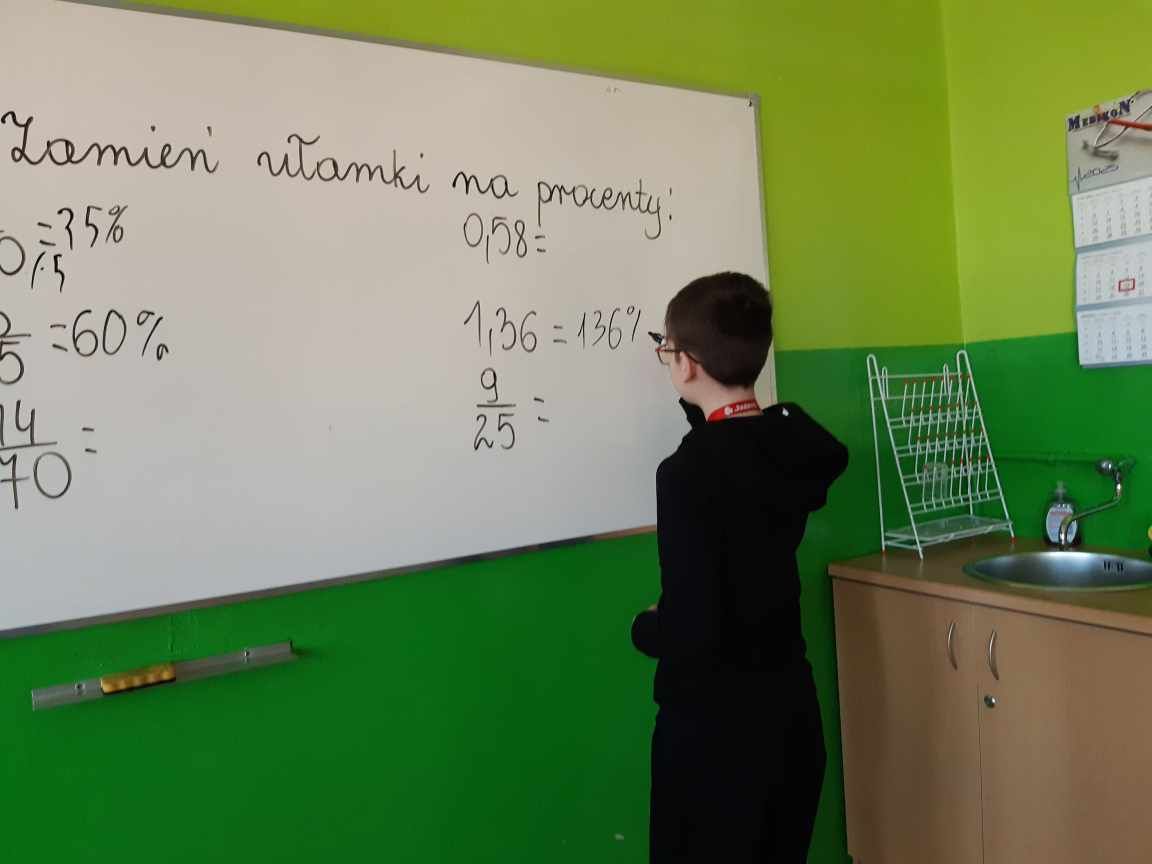 Zamień ułamki na procenty:
0 /:5 =35%
5 =60%
14
70 =
0,58=
1,36 = 136%
9
25 =
MEDIKON